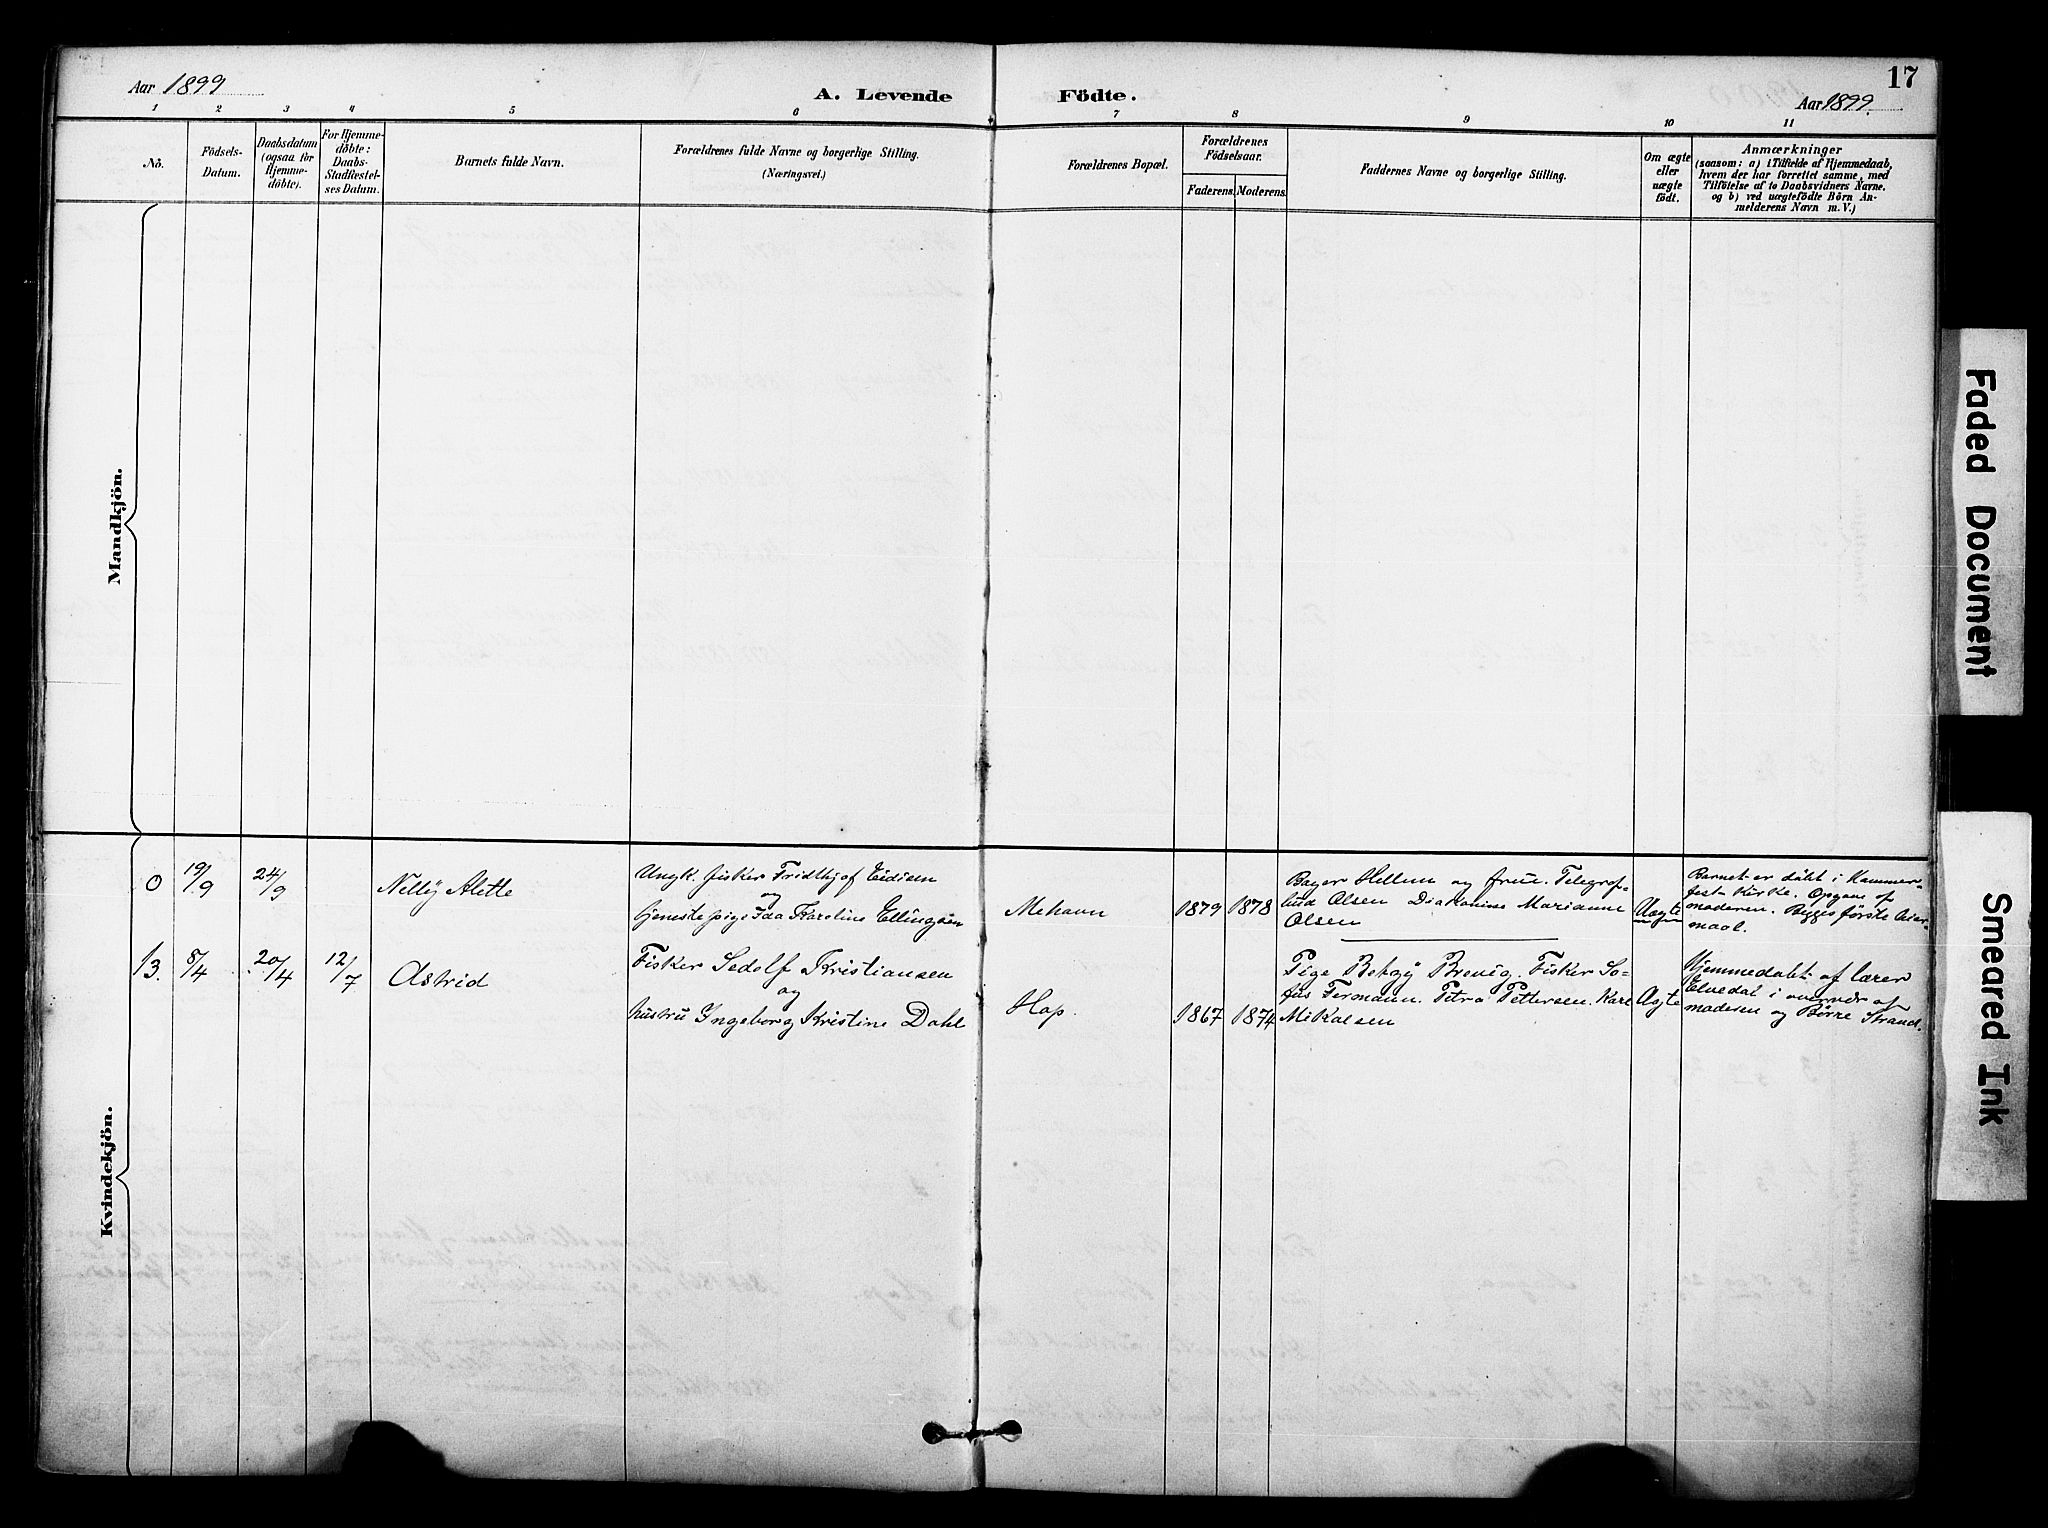 17
Aar 1899
A. Levende Födte.
Aar 1899.
1 2 3 4 5 6 7 8 9 10 11
No.
Födsels-
Datum.
Daabsdatum
(ogsaa for
Hjemme-
döbte).
For Hjemme-
döbte:
Daabs-
Stadfæstel-
ses Datum.
Barnets fulde Navn.
Forældrenes fulde Navne og borgerlige Stilling.
(Næringsvei.)
Forældrenes Bopæl.
Forældrenes
Födselsaar.
Faderens. Moderens.
Faddernes Navne og borgerlige Stilling.
Om ægte
eller
uægte
födt.
Anmærkninger
(saasom: a) i Tilfælde af Hjemmedaab,
hvem der har forrettet samme, med
Tilföielse af to Daabsvidners Navne.
og b) ved uægtefödte Börn An-
melderens Navn m. V.)
Mandkjön.
Kvindekjön.
0 19/9 24/9
Nelly Alette
Ungk. fisker Fridthjof Eidisen
og
tjenestepige Ida Karoline Ellingsen
Mehavn
1879 1878
Bager Hellum og frue. Telegraf-
bud Olsen Marianne
Olsen
Uægte
Barnet er døbt i Hammer-
fest Kirke. Opgave af
moderen. Begges første leier-
maal.
13. 8/4 20/4 12/7
Astrid
Fisker Sedolf Kristiansen
og
hustru Ingeborg Kristine Dahl
Hop.
1867 1874
Pige Betzy Brevig. Fisker So-
fus Fermann. Petra Pettersen. Karl
Mikalsen
Ægte
Hjemmedøbt af lærer
Elvedal i overvær af
moderen og Børre Strand.
Faded Document
Smeared Ink